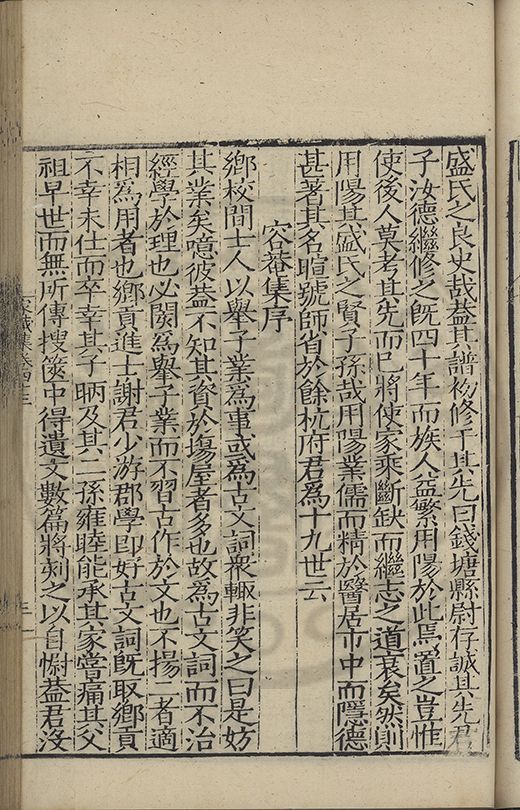 盛氏之良史哉葢其譜初修于其先曰錢塘縣尉存誠其先君
子汝德繼修之旣四十年而族人益繁用陽於此焉置之豈惟
使後人莫考其先而已將使家乘斷缺而繼志之道衰矣然則
用陽其盛氏之賢子孫哉用陽業儒而精於醫居市中而隱德
甚著其名暄號師省於餘杭府君爲十九世云
容菴集序
鄉校間士人以舉子業爲事或爲古文詞衆輙非笑之曰是妨
其業矣噫彼葢不知其資於塲屋者多也故爲古文詞而不治
經學於理也必闕爲舉子業而不習古作於文也不揚二者適
相爲用者也鄉貢進士謝君少游郡學卽好古文詞旣取鄉貢
不幸未仕而卒幸其子昞及其二孫雍睦能承其家嘗痛其父
祖早世而無所傳搜篋中得遺文數篇將刻之以自慰葢君沒